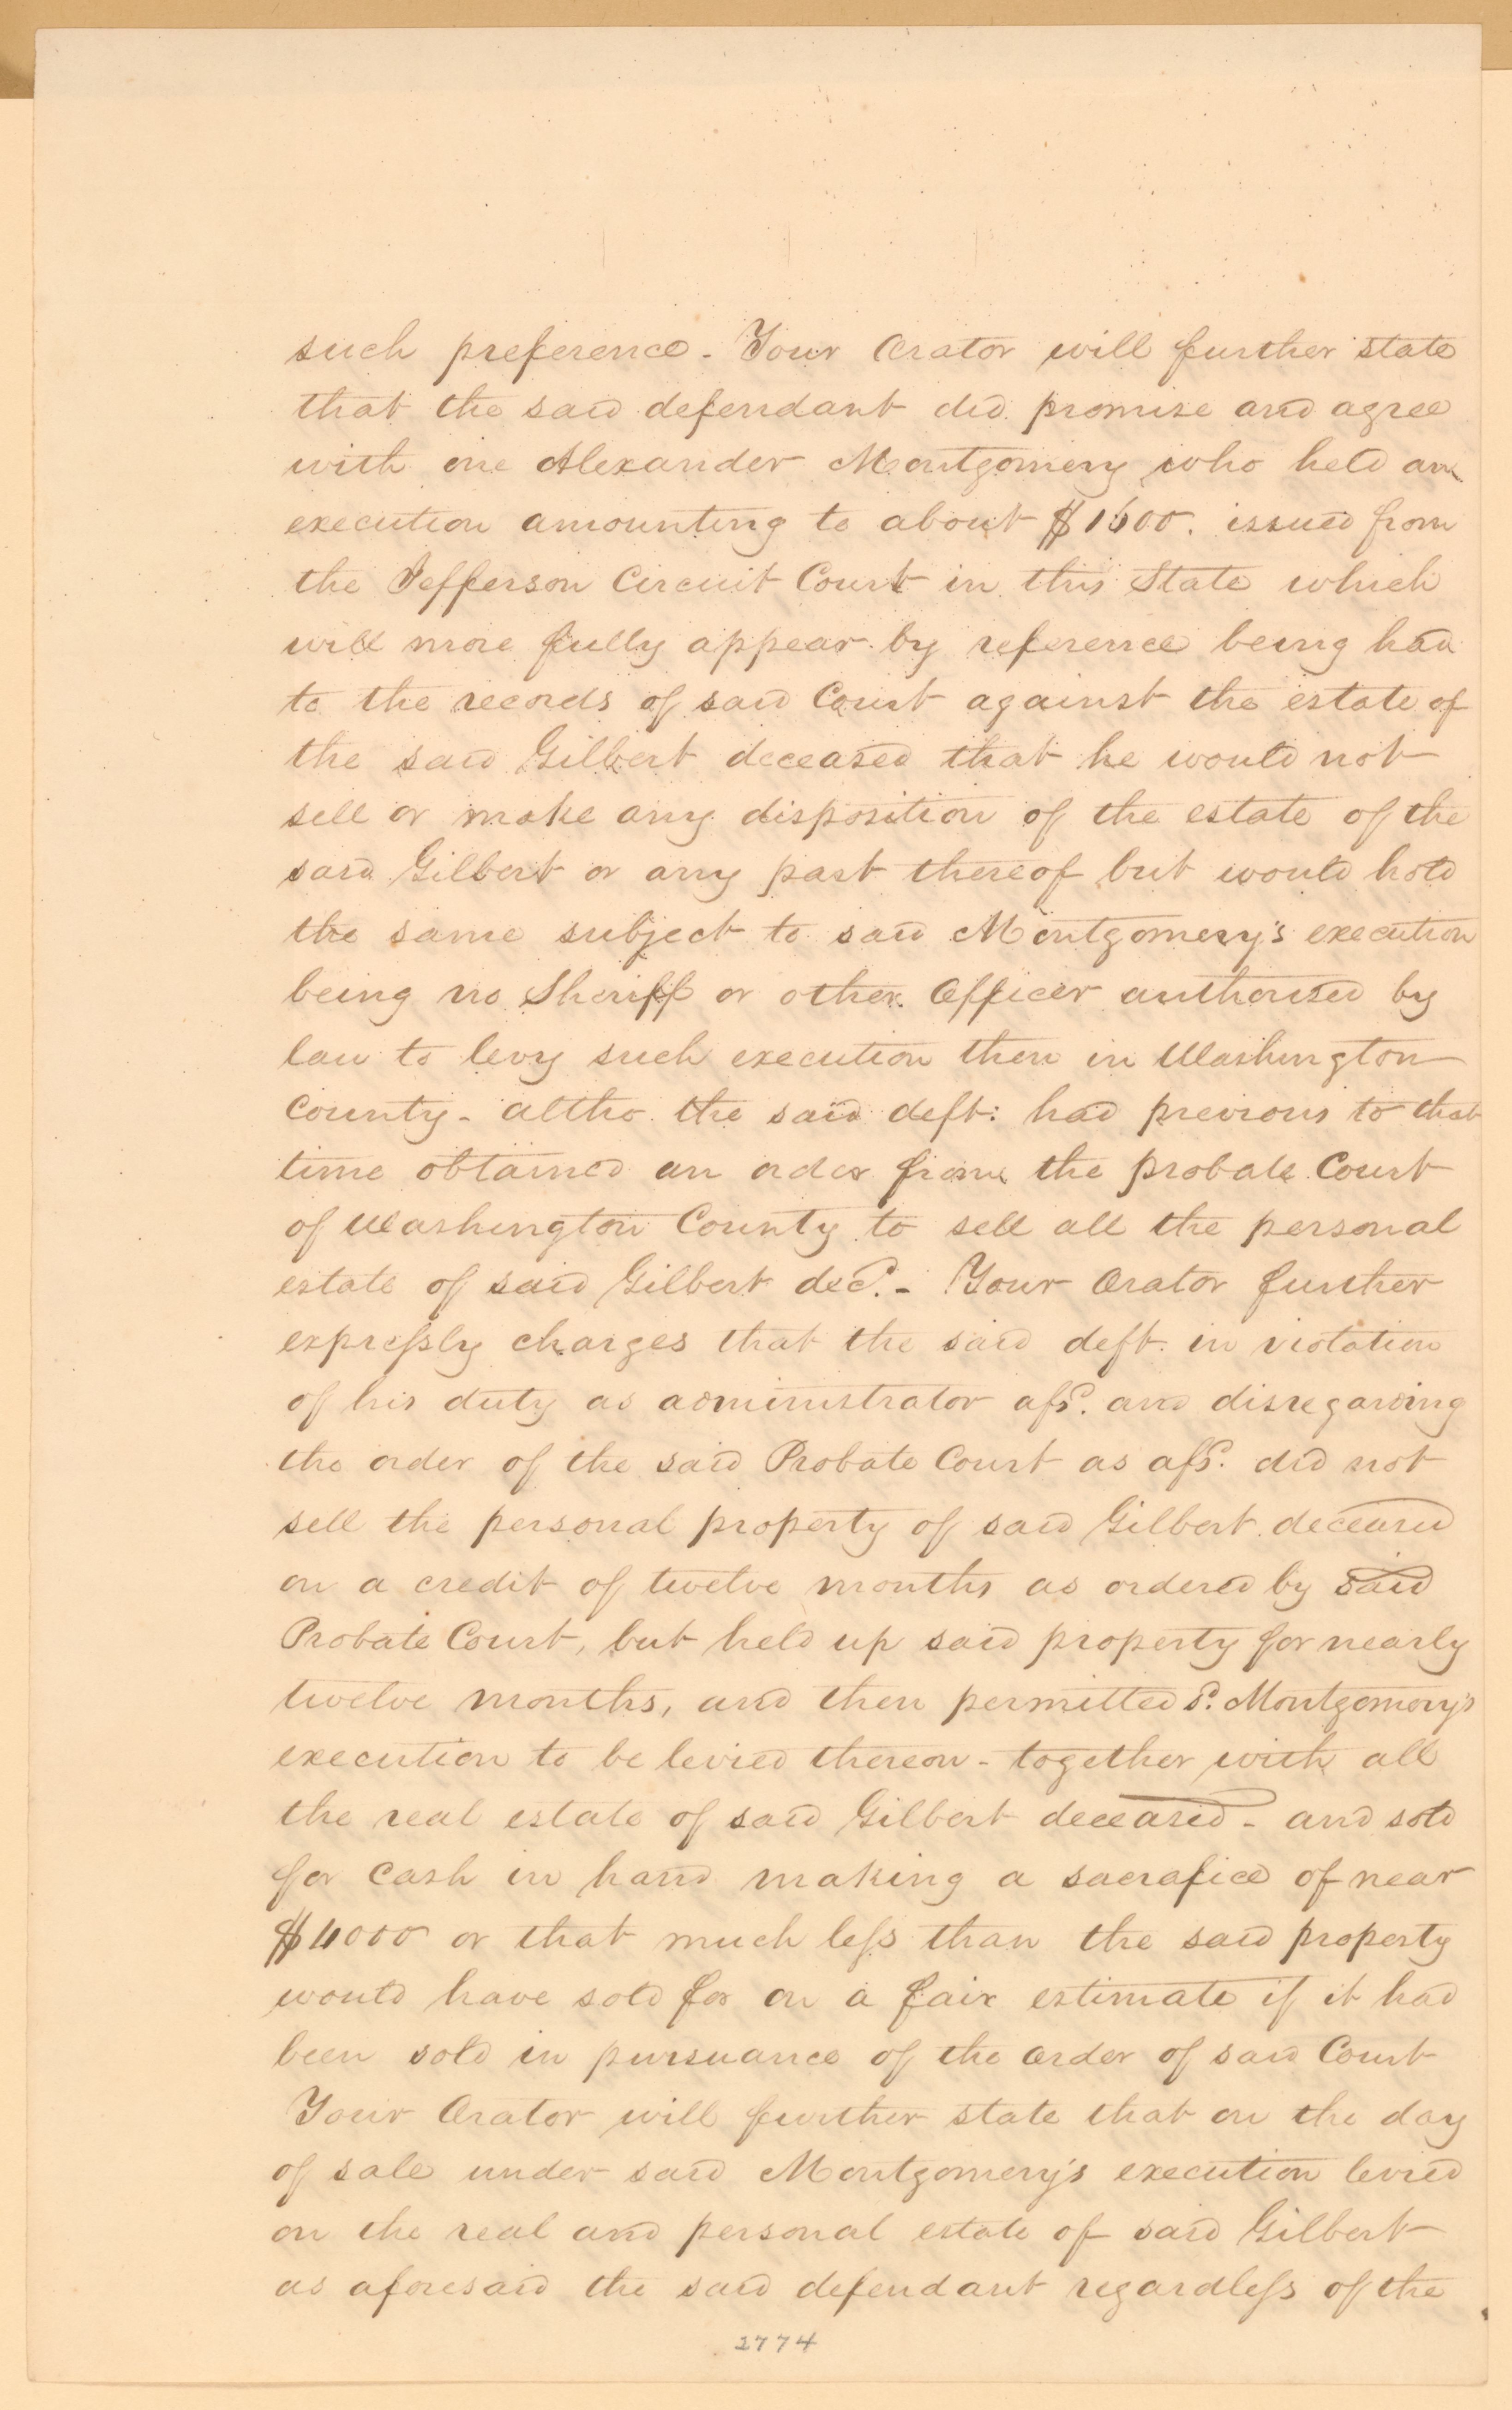 such preference - Your Orator will further state
that the said defendant did promise and agree
with one Alexander Montgomery who held an
execution amounting to about $1600. issued from
the Jefferson Circuit Court in this State which
will more fully appear by reference being had
to the records of said Court against the estate of
the said Gilbert deceased that he would not
sell or make any disposition of the estate of the
said Gilbert or any part thereof but would hold
the same subject to said Montgomery's execution
being no Sheriff or other Officer authorised by
law to levy such execution then in Washington
County - altho the said deft: had previous to that
time obtained an order from the probate Court
of Washington County to sell all the personal
estate of said Gilbert decd. - Your Orator further
expressly charges that the said deft. in violation
of his duty as administrator afsd. and disregarding
the order of the said Probate Court as afsd. did not
sell the personal property of said Gilbert deceased
on a credit of twelve months as ordered by said
Probate Court, but held up said property for nearly
twelve months, and then permitted sd. Montgomery's
execution to be levied thereon - together with all
the real estate of said Gilbert deceased - and sold
for Cash in hand making a sacrafice of near
$4000 or that much less than the said property
would have sold for on a fair estimate if it had
been sold in pursuance of the order of said Court
Your Orator will further state that on the day
of sale under said Montgomery's execution levied
on the real and personal estate of said Gilbert
as aforesaid the said defendant regardless of the
2774